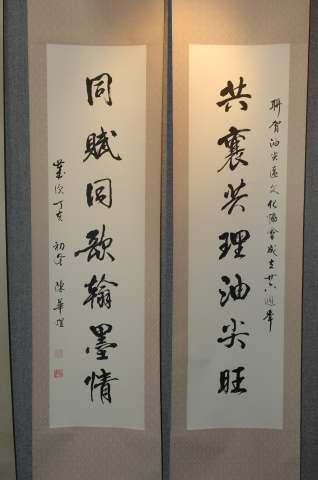 聯賀油尖區文化協會成立廿八週年
共襄共理油尖旺
同賦同歌翰墨情
歲次丁亥 初冬 陳華